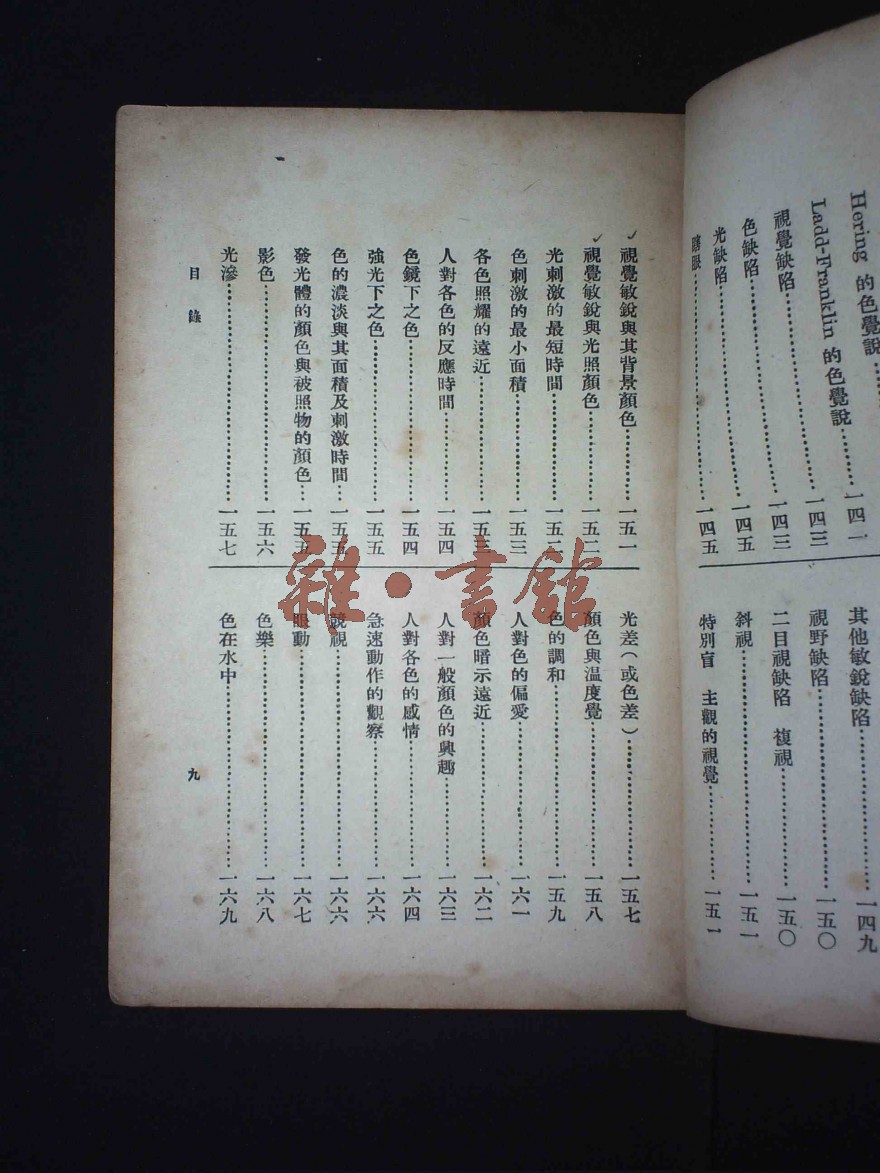 Hering 的色覺說
Ladd-Franklin 的色覺說………一四一
視覺缺陷………一四三
色缺陷………一四三
光缺陷………一四五
………一四五
其他敏銳缺陷………一四九
視野缺陷………一五〇
二目視缺陷 複視………一五〇
斜視………一五一
特別盲 主觀的視覺………一五一
視覺敏銳與其背景顏色………一五一
視覺敏銳與光照顏色………一五二
光刺激的最短時間………一五二
色刺激的最小面積………一五三
各色照耀的遠近………一五三
人對各色的反應時間………一五四
色鏡下之色………一五四
強光下之色………一五五
色的濃淡與其面積及刺激時間…一五五
發光體的顏色與被照物的顏色…一五五
影色………一五六
光滲………一五七
光差(或色差)………一五七
顏色與溫度覺………一五八
色的調和………一五九
人對色的偏愛………一六一
顏色暗示遠近………一六二
人對一般顏色的興趣………一六三
人對各色的感情………一六四
急速動作的觀察………一六六
競視………一六六
眼動………一六七
色樂………一六八
色在水中………一六九
目錄
九
雜·書館